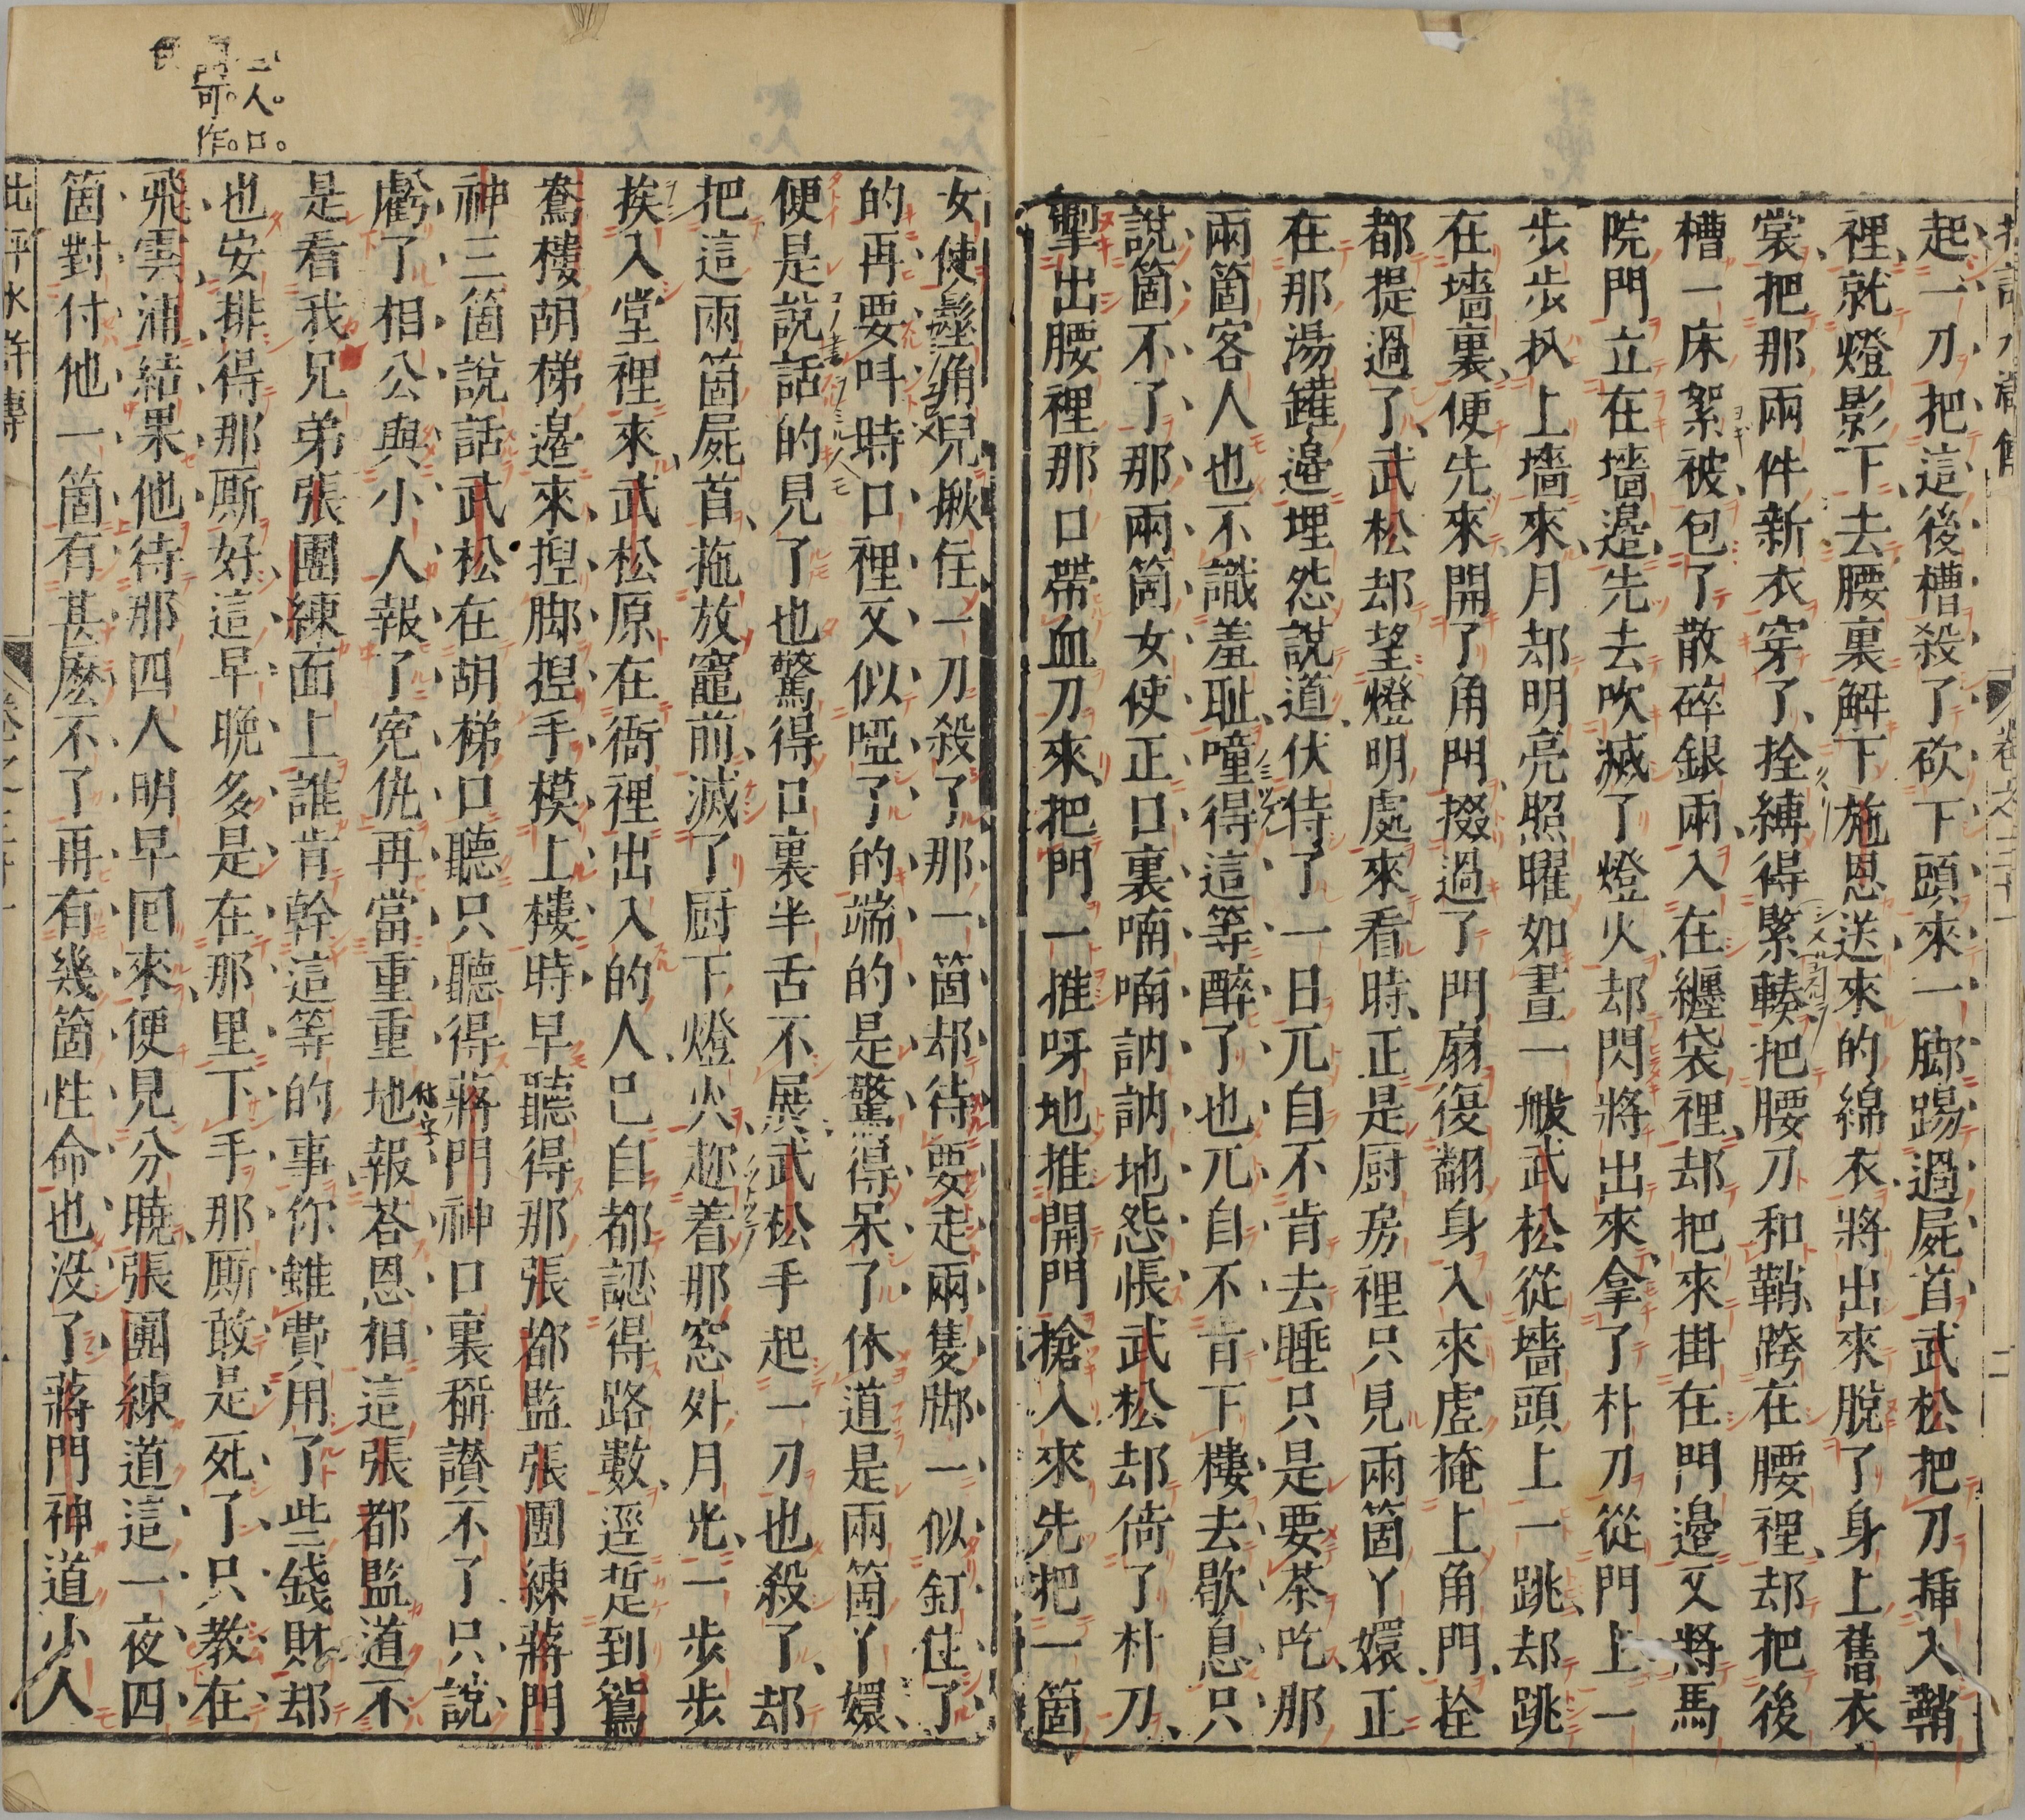 起一刀把這後槽殺了砍下頭來一脚踢過屍首武松把刀挿入鞘
裡就燈影下去腰裏解下施恩送來的綿衣將出來脫了身上舊衣
裳把那兩件新衣穿了拴縛得緊輳把腰刀和鞘跨在腰裡却把後
槽一床絮被包了散碎銀兩入在纏袋裡却把來掛在門邊又將馬
院門立在墻邊先去吹滅了燈火却閃將出來拿了朴刀從門上一
步步扒上墻來月却明亮照曜如晝一般武松從墻頭上一跳却跳
在墻裏便先來開了角門掇過了門扇復翻身入來虛掩上角門拴
都提過了武松却望燈明處來看時正是厨房裡只見兩箇丫嬛正
在那湯鑵邉埋怨說道伏侍了一日兀自不肯去睡只是要茶吃那
兩箇客人也不識羞耻噇得這等醉了也兀自不肯下樓去歇息只
說箇不了那兩箇女使正口裏喃喃訥訥地怨悵武松却倚了朴刀
掣出腰裡那口帶血刀來把門一推呀地推開門搶入來先把一箇
女使髽角兒揪住一刀殺了那一箇却待要走兩隻脚一似釘住了
的再要呌時口裡又似啞了的端的是驚得呆了休道是兩箇丫嬛
便是說話的見了也驚得口裏半舌不展武松手起一刀也殺了却
把這兩箇屍首拖放竈前滅了厨下燈火趂着那窓外月光一步步
挨入堂裡來武松原在衙裡出入的人已自都認得路數逕踅到鴛
鴦樓胡梯邉來捏脚捏手模上樓時早聽得那張都監張團練蔣門
神三箇說話武松在胡梯口聽只聽得蔣門神口裏稱讃不了只說
虧了相公與小人報了寃仇再當重重地報荅恩相這張都監道不
是看我兄弟張團練面上誰肯幹這等的事你雖費用了些錢財却
也安排得那厮好這早晚多是在那里下手那厮敢是死了只教在
飛雲浦結果他待那四人明早囘來便見分曉張團練道這一夜四
箇對付他一箇有甚麽不了再有幾箇性命也沒了蔣門神道小人